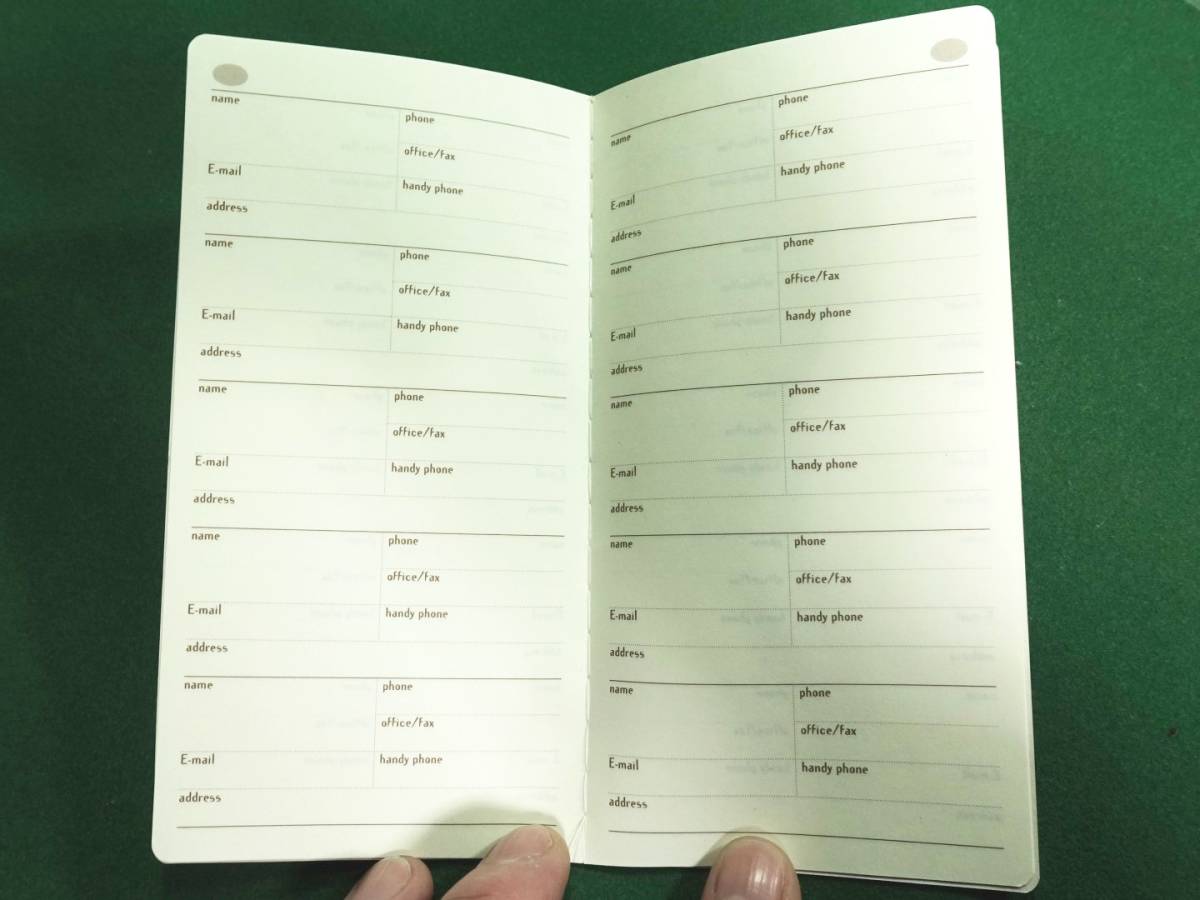 name
phone
office/fax
E-mail
handy phone
address
name
phone
office/fax
E-mail
handy phone
address
name
phone
office/fax
E-mail
handy phone
address
name
phone
office/fax
E-mail
handy phone
address
name
phone
office/fax
E-mail
handy phone
address
name
phone
office/fax
E-mail
handy phone
address
name
phone
office/fax
E-mail
handy phone
address
name
phone
office/fax
E-mail
handy phone
address
name
phone
office/fax
E-mail
handy phone
address
name
phone
office/fax
E-mail
handy phone
address